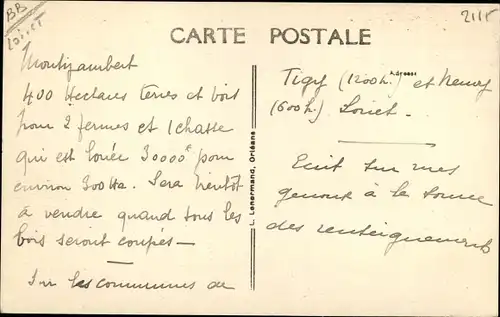 BB
Loiret
2115
CARTE POSTALE
Montizambert
400 Hectares terres et bois
pour 2 fermes et 1 chasse
qui est louée 30000 pour
environ 300 Ha. Sera bientôt
à vendre quand tous les
bois seront coupés —
Sur les communes de
L. Lenormand, Orléans
Adresse
Tigy (1200 h.) et Neuvy
(600 h.) Loiret.
Ecrit sur mes
genoux à la source
des renseignements